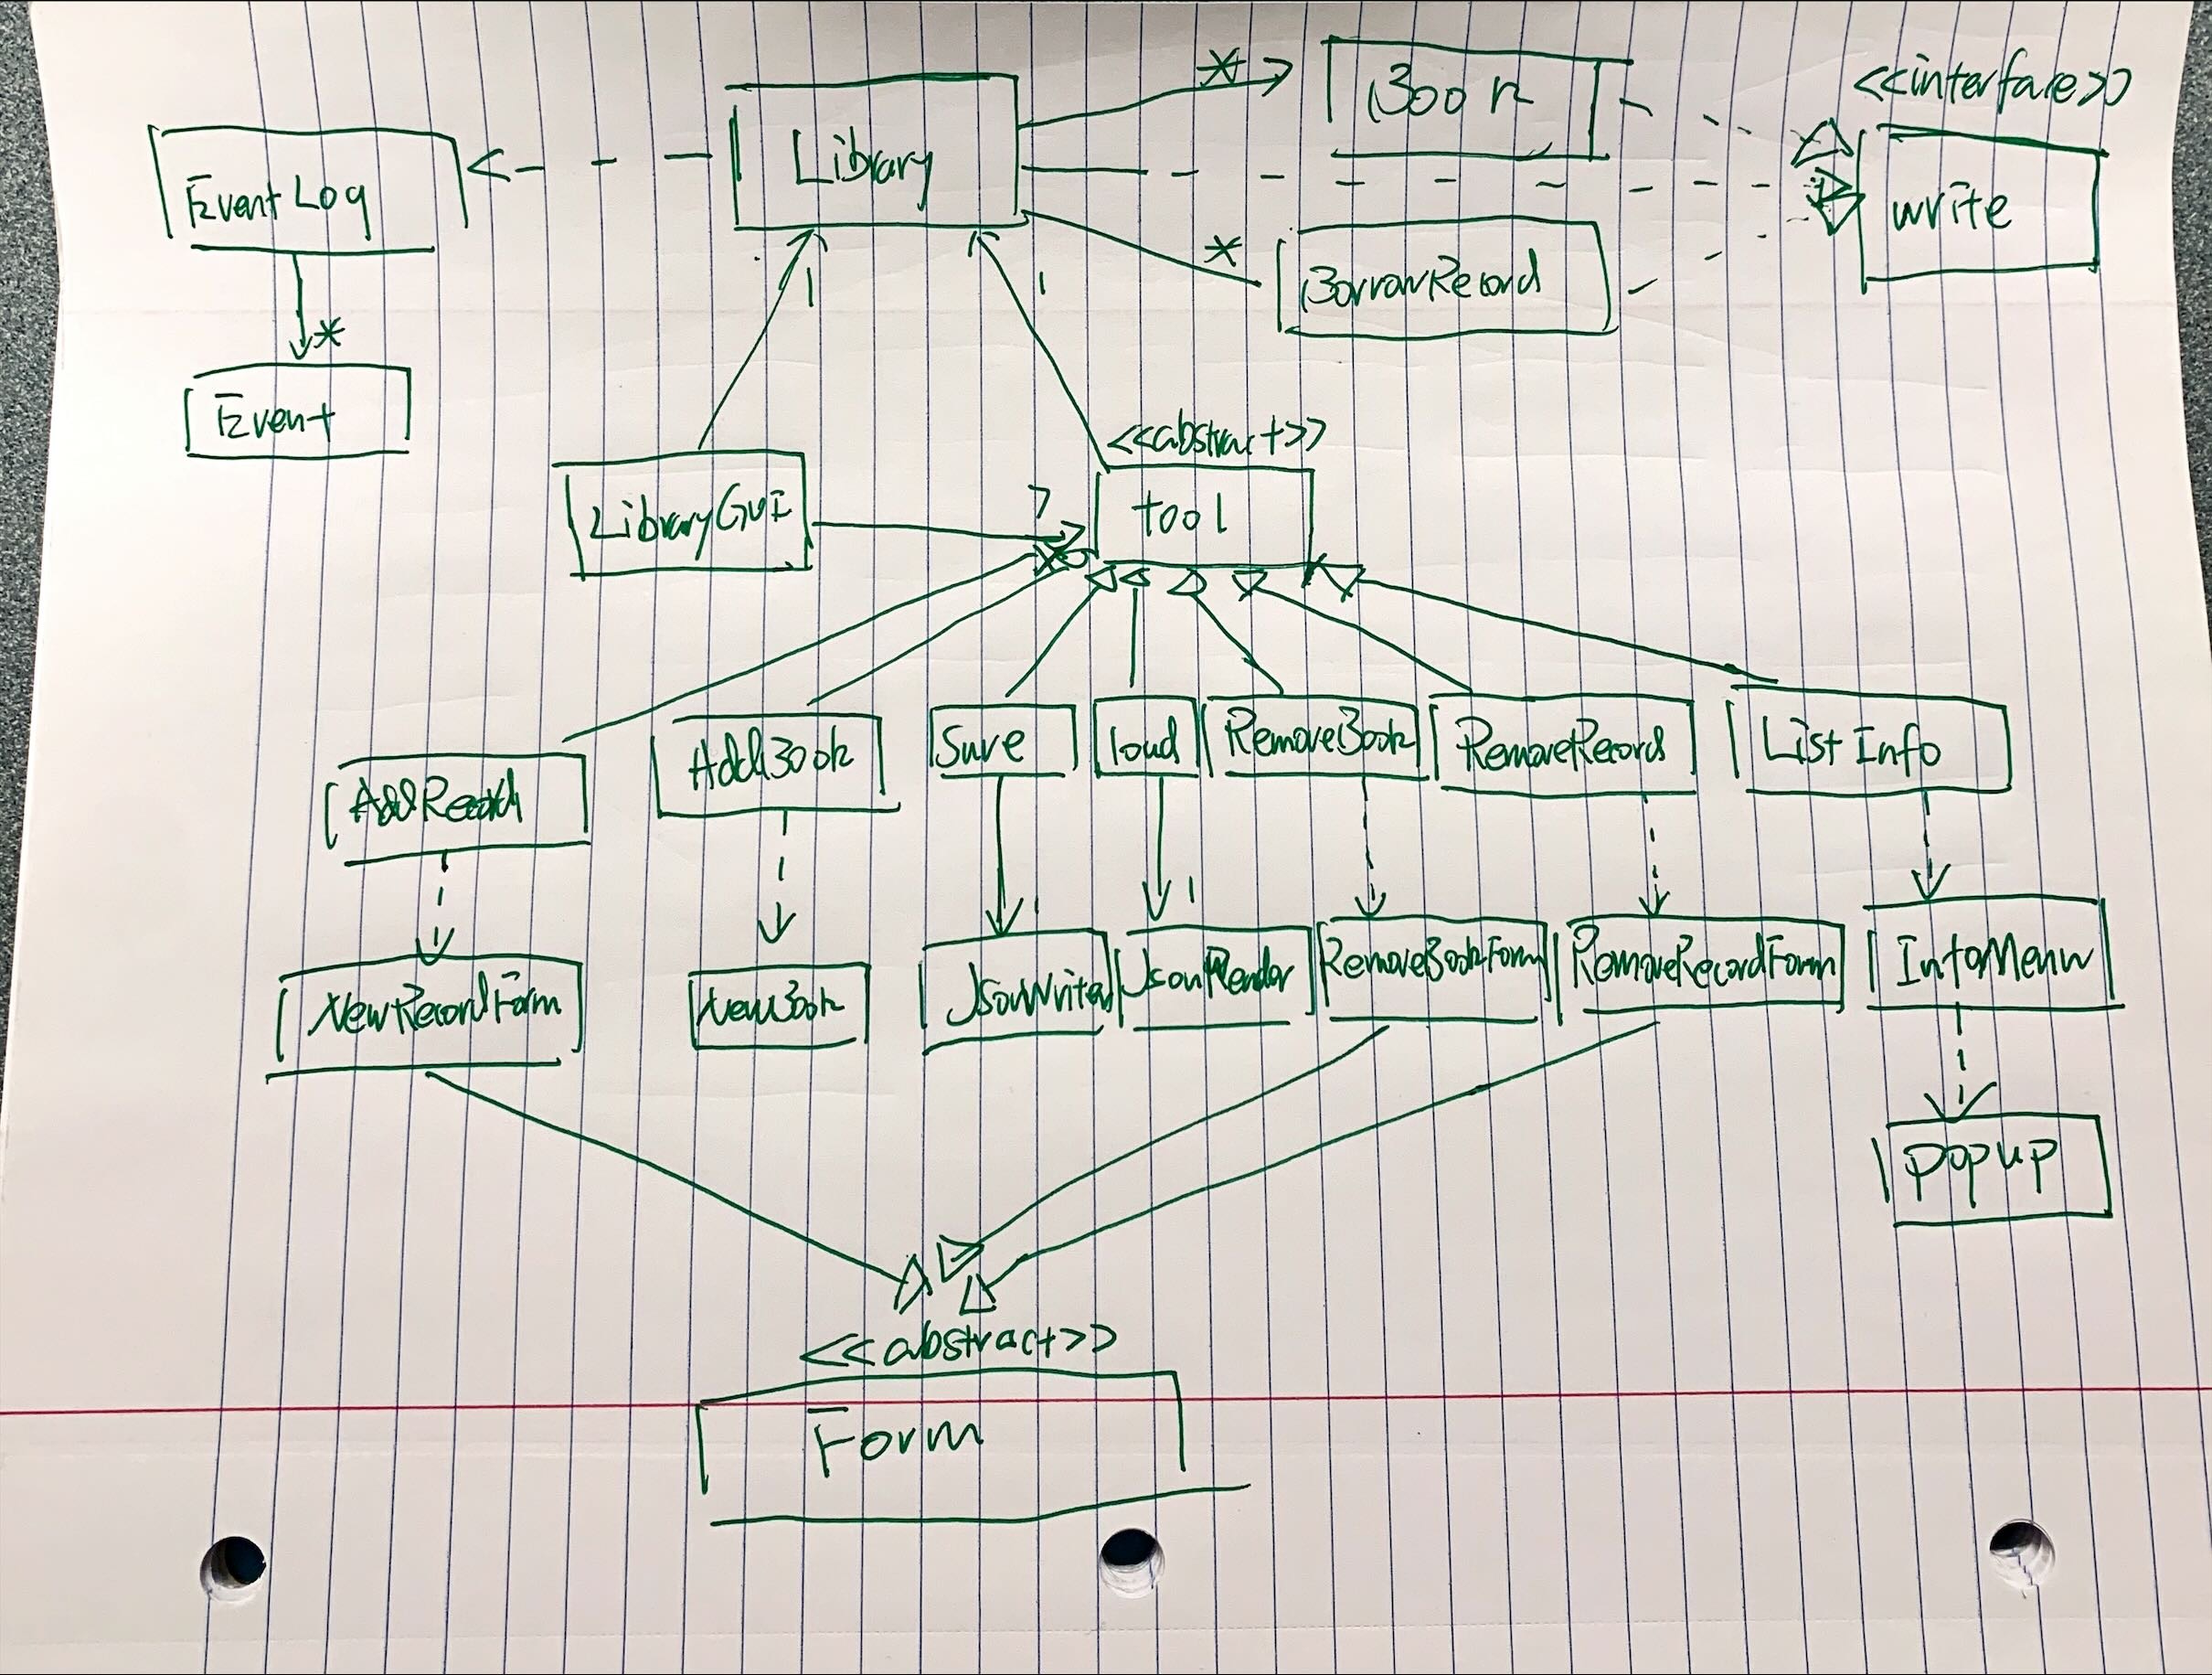 *
Book
<<interface>>
write
Library
EventLog
*
BorrowRecord
1
1
*
Event
<<abstract>>
tool
7
LibraryGUI
AddRecord
AddBook
Save
load
RemoveBook
RemoveRecord
List Info
1
1
NewRecordForm
NewBook
JsonWriter
JsonReader
RemoveBookForm
RemoveRecordForm
InfoMenu
popup
<<abstract>>
Form